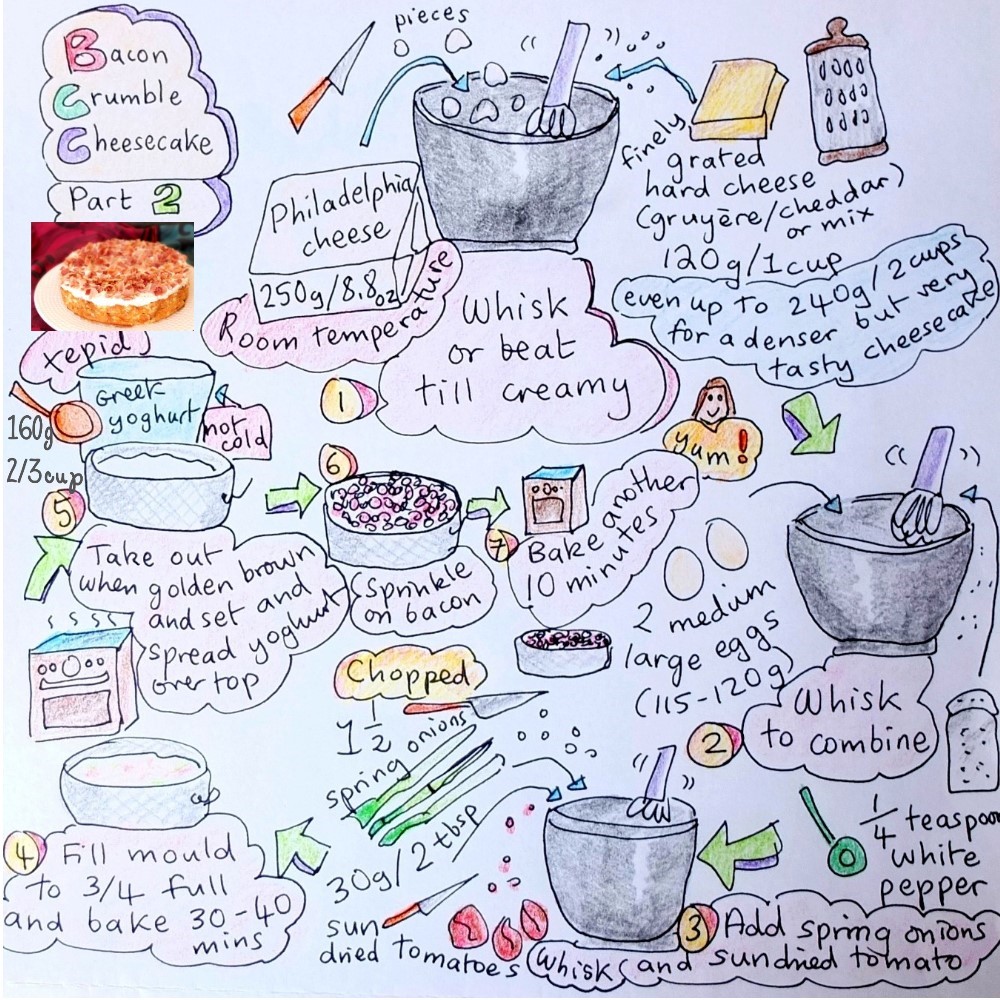 Bacon
Crumble
Cheesecake
Part 2
pieces
Philadelphia
cheese
250g/8.8oz
Room temperature
finely
grated
hard cheese
(gruyère/cheddar)
or mix
120g/1cup
even up to 240g/2cups
for a denser but very
tasty cheesecake
1
Whisk
or beat
till creamy
yum!
2 medum
large eggs
(115-120g)
2
Whisk
to combine
1/4 teaspoon
white
pepper
3
Add spring onions
and sundried tomato
Whisk
Chopped
1 1/2
spring onions
30g/2tbsp
sun
dried tomatoes
4
Fill mould
to 3/4 full
and bake 30-40
mins
5
Take out
when golden brown
and set and
spread yoghurt
over top
xepid)
Greek
yoghurt
not
cold
160g
2/3cup
6
Sprinkle
on bacon
7
Bake another
10 minutes